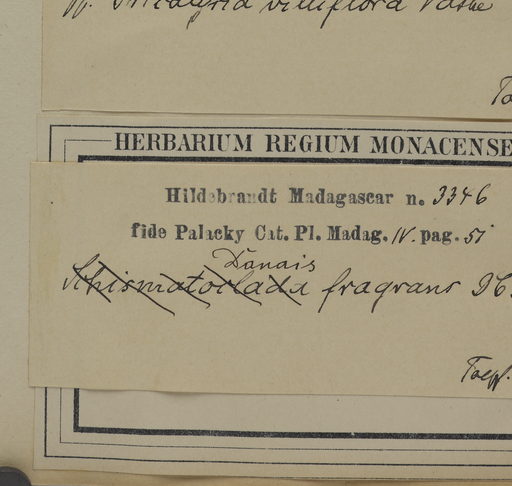 villiflora Vatke
HERBARIUM REGIUM MONACENSE
Hildebrandt Madagascar n. 3346
fide Palacky Cat. Pl. Madag. IV. pag. 51
Danais
Schismatoclada fragrans
Toepf.